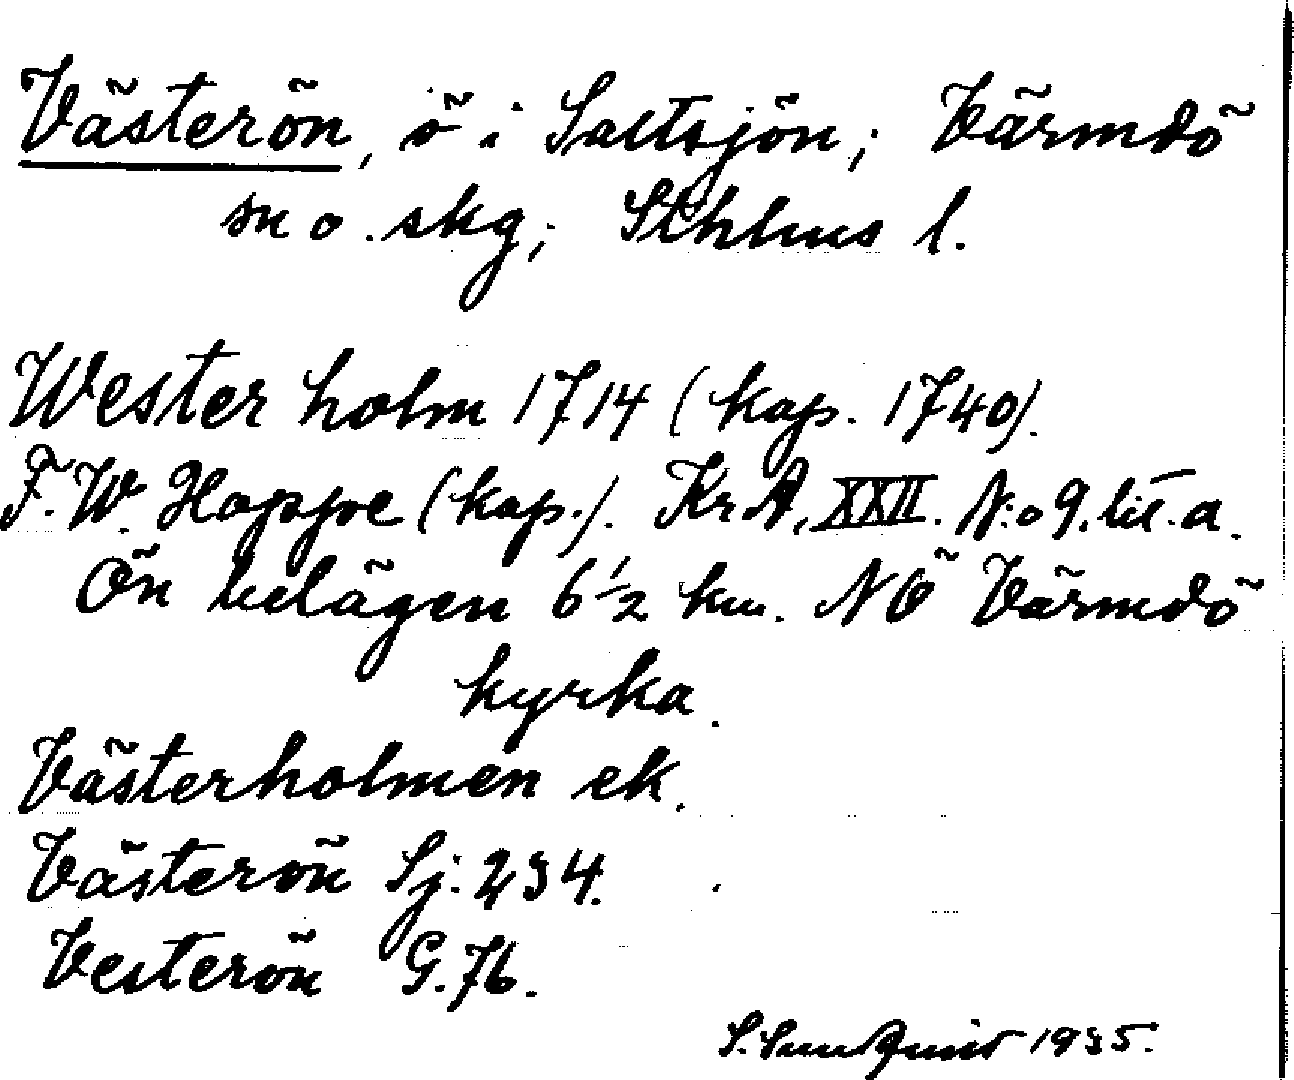 Västerön, ö i Saltsjön; Värmdö
sn o. skg; Sthlms l.
Westerholm 1714 (kop. 1740).
F. W. Hoppe (kop.). KrA, XXII. N:o 9. lit. a.
Ön belägen 6 1/2 km. NÖ Värmdö
kyrka.
Västerholmen ek.
Västerön Sj. 234.
Vesterön G. 76.
S. Sundquist 1935.